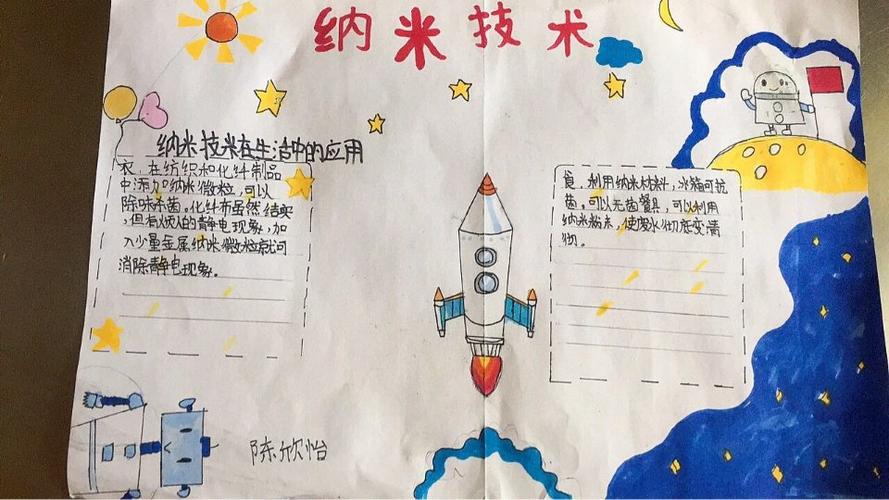 纳米技术
纳米技术在生活中的应用
衣，在纺织和化纤制品
中添加纳米微粒，可以
除味杀菌。化纤布虽然结实
，但有烦人的静电现象，加
入少量金属纳米微粒就可
消除静电现象。
食，利用纳米材料，冰箱可抗
菌。可以无菌餐具，可以利用
纳米粉末，使废水彻底变清
彻。
陈欣怡